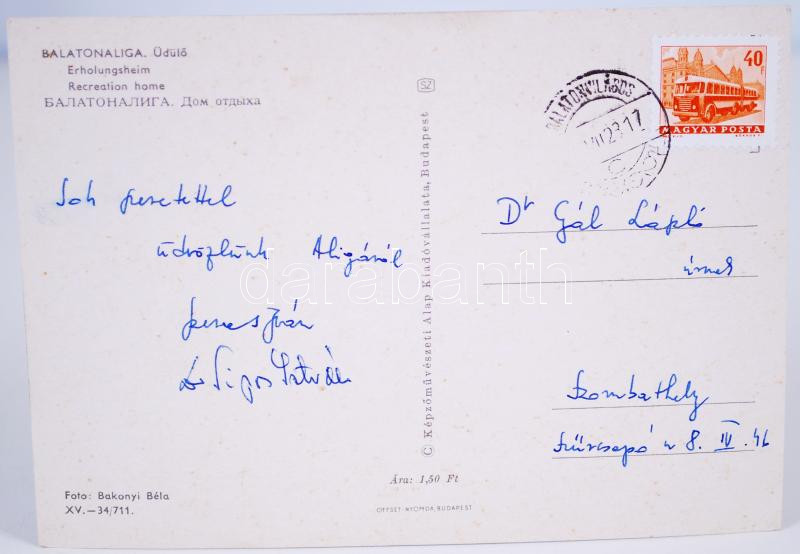 BALATONALIGA. Üdülő
Erholungsheim
Recreation home
БАЛАТОНАЛИГА. Дом отдыха
40 f
MAGYAR POSTA
BALATONVILÁGOS
23.17
Sok szeretettel
üdvözlünk Aligáról
Dr Sipos István
Dr Gál László
úrnak
Szombathely
8. IV. 46
SZ
© Képzőművészeti Alap Kiadóvállalata, Budapest
Ára: 1,50 Ft
OFFSET-NYOMDA, BUDAPEST
Foto: Bakonyi Béla
XV.—34/711.
darabanth